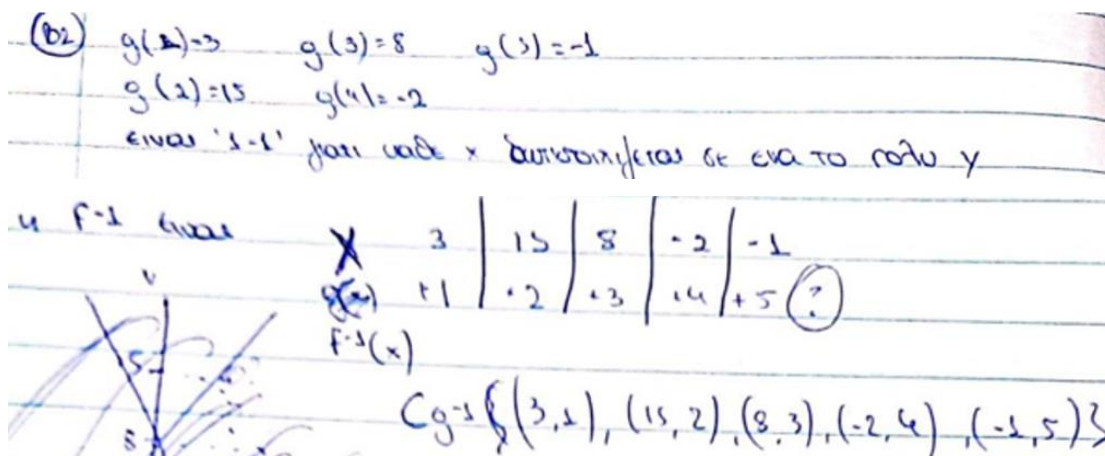 B2 g(1)=3 g(3)=8 g(5)=-1
g(2)=15 g(4)=-2
ειναι '1-1' γιατι καθε x αντιστοιχιζεται σε ενα το πολυ y
η F-1 ειναι
X 3 | 15 | 8 | -2 | -1
g(x) +1 | +2 | +3 | +4 | +5 ?
F-1(x)
Cg-1 {(3,1), (15,2), (8,3), (-2,4), (-1,5)}